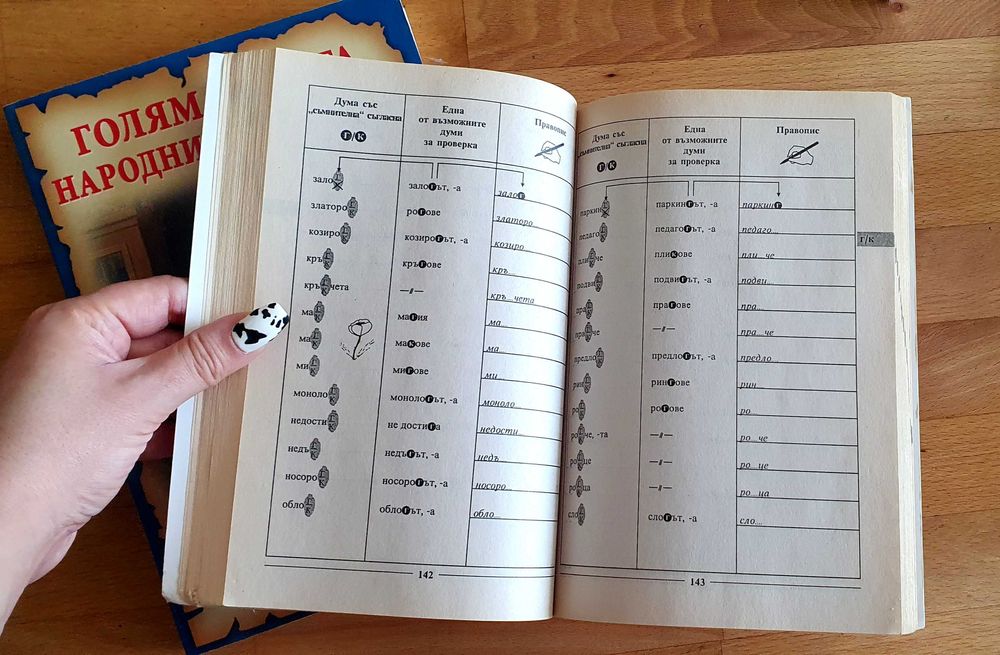 ГОЛЯМ
НАРОДНИ
Дума със „съмнителна“ съгласна г/к | Една от възможните думи за проверка | Правопис
зало | залогът, -а | залог
златоро | рогове | златоро
козиро | козирогът, -а | козиро
кръ | кръгове | кръ
кръ чета | —〃— | кръ...чета
ма | магия | ма...
ма | макове | ма
ми | мигове | ми
моноло | монологът, -а | моноло
недости | не достига | недости
недъ | недъгът, -а | недъ
носоро | носорогът, -а | носоро
обло | облогът, -а | обло...
142
Дума със „съмнителна“ съгласна г/к | Една от възможните думи за проверка | Правопис
паркин | паркингът, -а | паркинг
педаго | педагогът, -а | педаго...
пли че | пликове | пли...че
подви | подвигът, -а | подви...
пра | прагове | пра...
пра че | —〃— | пра...че
предло | предлогът, -а | предло
рин | рингове | рин
ро | рогове | ро
ро че, -та | —〃— | ро...че
ро це | —〃— | ро...це
ро ца | —〃— | ро...ца
сло | слогът, -а | сло...
Г/К
143